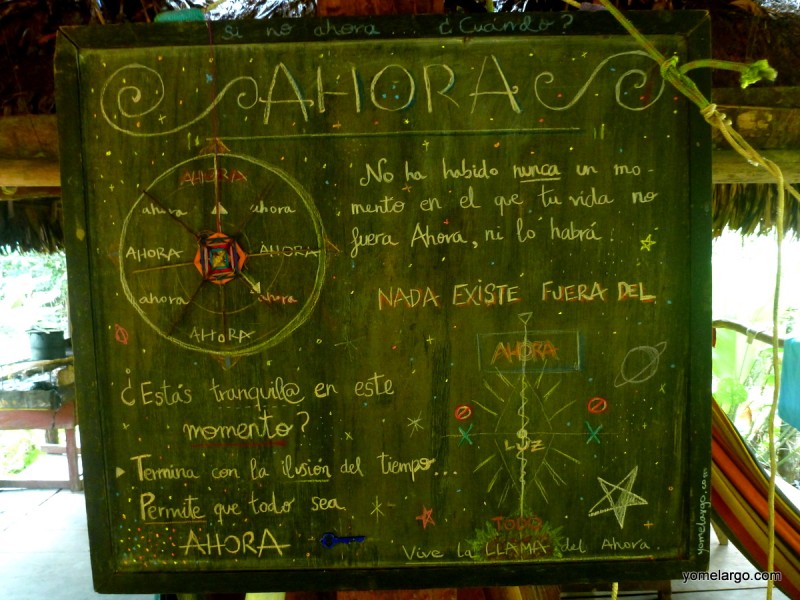 Si no ahora... ¿Cuándo?
AHORA
AHORA
ahora ahora
AHORA AHORA
ahora ahora
AHORA
No ha habido nunca un mo-
mento en el que tu vida no
fuera Ahora, ni lo habrá
NADA EXISTE FUERA DEL
AHORA
LUZ
TODO
¿Estás tranquil@ en este
momento?
Termina con la ilusión del tiempo...
Permite que todo sea
AHORA
Vive la LLAMA del Ahora
yomelargo.com
yomelargo.com